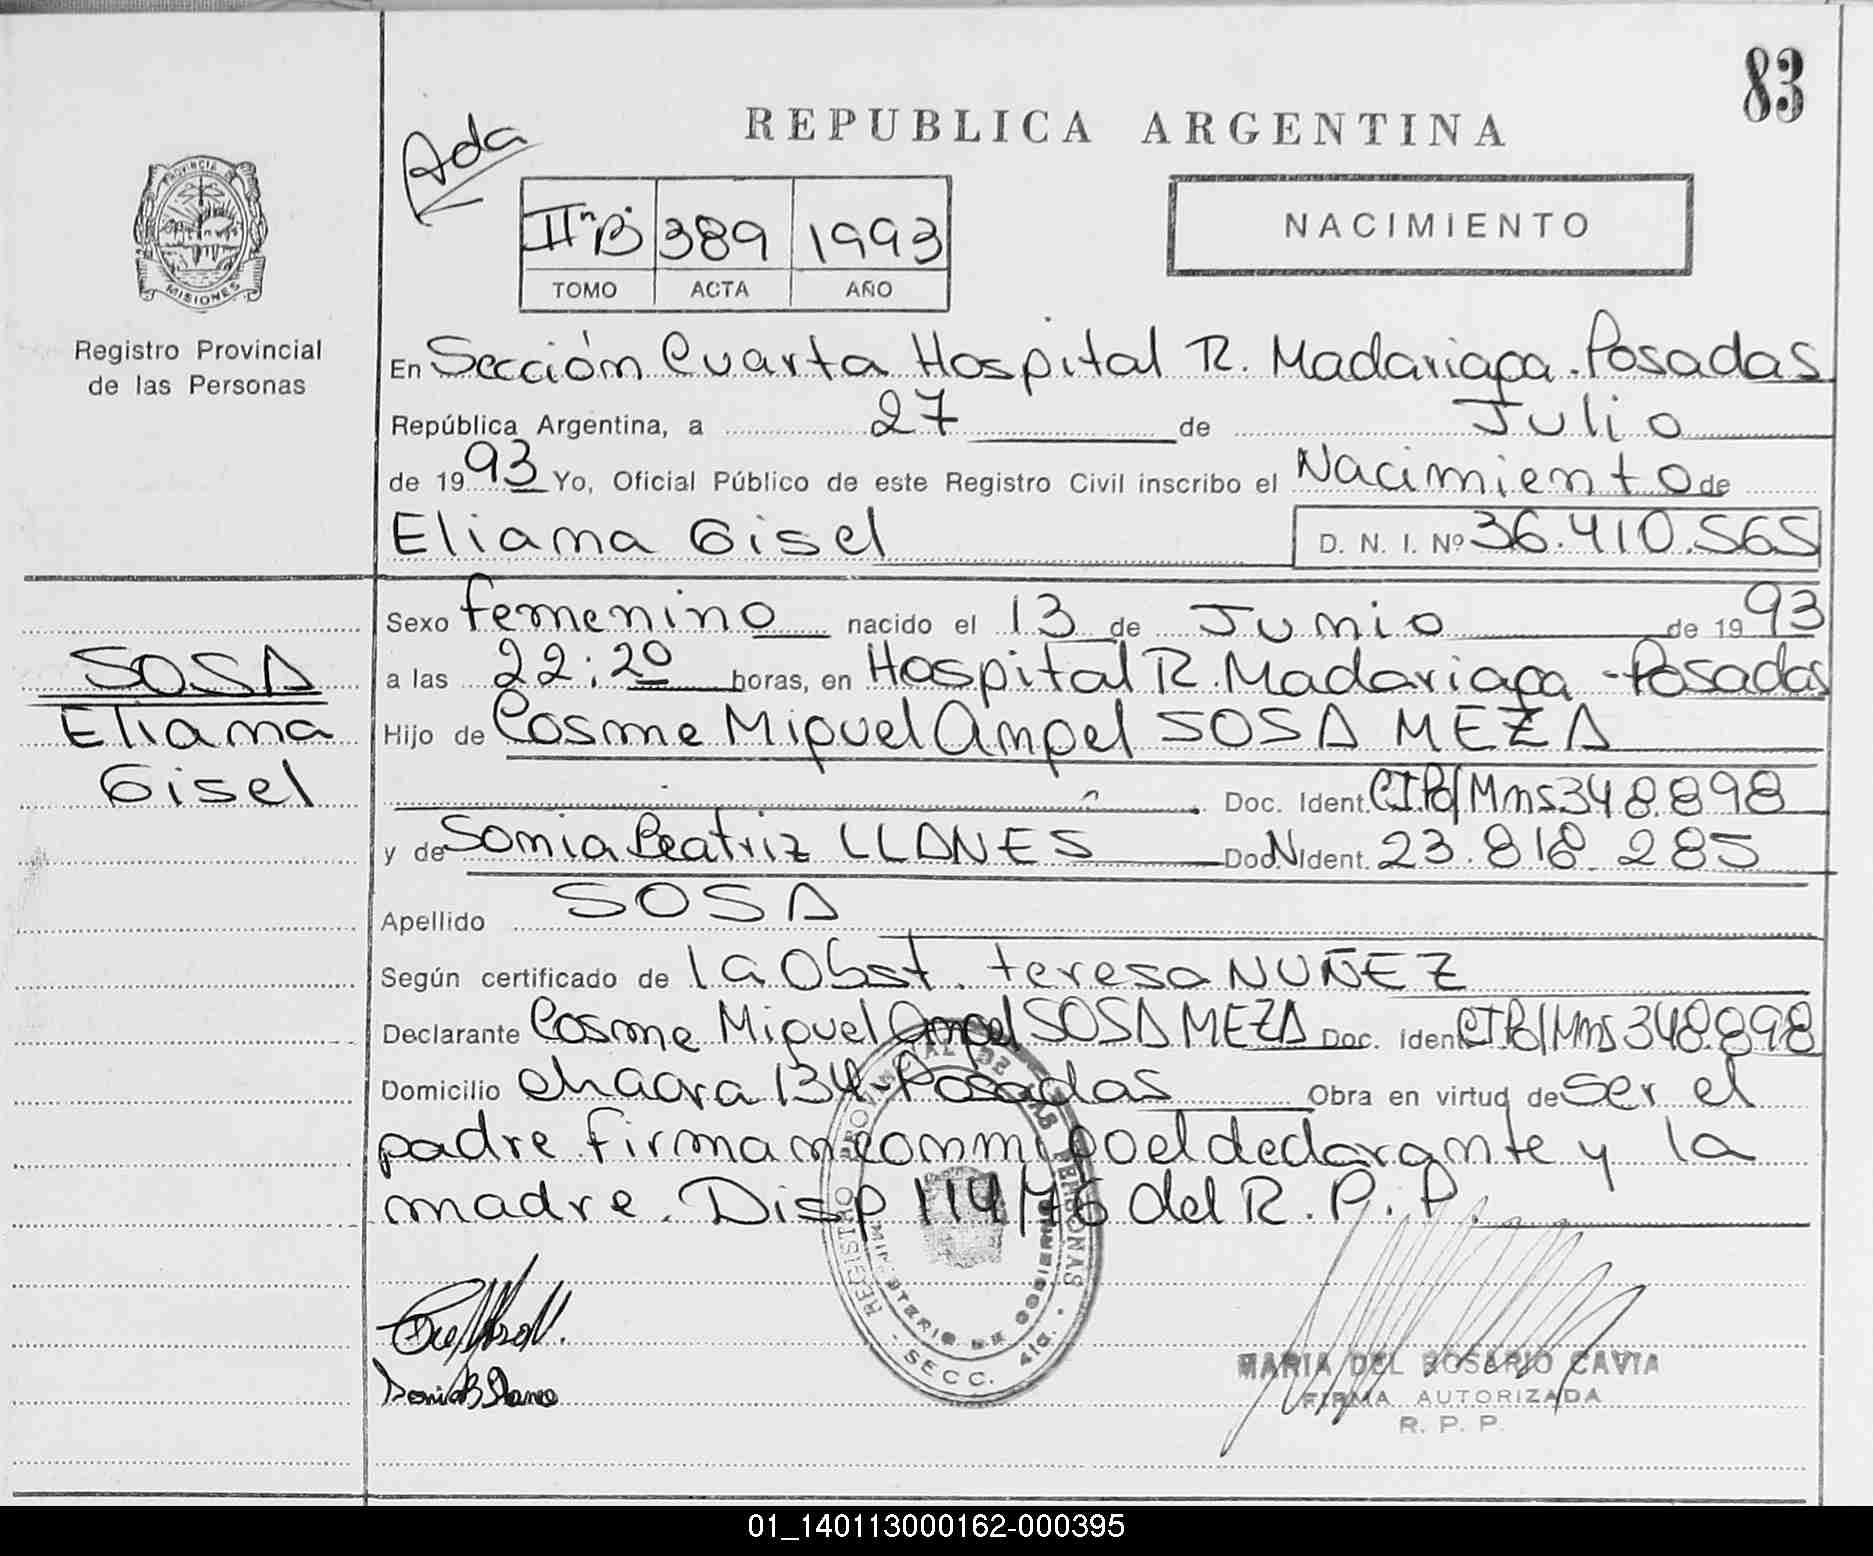 83
REPUBLICA ARGENTINA
Ada
NACIMIENTO
PROVINCIA DE
MISIONES
IIºB 389 1993
TOMO ACTA AÑO
Registro Provincial
de las Personas
En Sección Cuarta Hospital R. Madariaga. Posadas
República Argentina, a 27 de Julio
de 1993 Yo, Oficial Público de este Registro Civil inscribo el Nacimiento de
Eliana Gisel D. N. I. Nº 36.410.565
Sexo femenino nacido el 13 de Junio de 1993
SOSA
Eliana
Gisel
a las 22:20 horas, en Hospital R. Madariaga - Posadas
Hijo de Cosme Miguel Angel SOSA MEZA
Doc. Ident. CIPol/Mns 348.898
y de Sonia Beatriz LLANES Doc. N Ident. 23.818.285
Apellido SOSA
Según certificado de la Obst. teresa NUÑEZ
Declarante Cosme Miguel Angel SOSA MEZA Doc. Ident. CIPol/Mns 348.898
Domicilio chacra 134 - Posadas Obra en virtud de ser el
padre firman conmigo el declarante y la
madre. Disp 114/76 del R. P. P.
REGISTRO PROVINCIAL DE LAS PERSONAS
MINISTERIO DE GOBIERNO
SECC. 4ta.
MARIA DEL ROSARIO CAVIA
FIRMA AUTORIZADA
R. P. P.
01_140113000162-000395